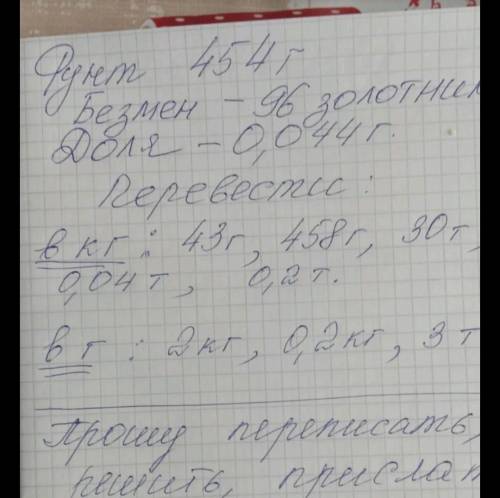 Фунт 454 г
Безмен – 96 золотник
Доля – 0,044 г.
Перевести:
в кг: 43 г, 458 г, 30 т,
0,04 т, 0,2 т.
в г: 2 кг, 0,2 кг, 3 т
Прошу переписать,
решить, прислат